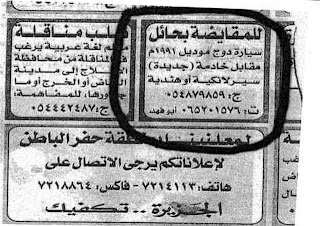 للمقايضة بحائل
سيارة دوج موديل ١٩٩١م
مقابل خادمة (جديدة)
سيرلانكية أو هندية
ج: ٠٥٤٨٧٩٨٥٩
ت: ٠٦٥٢٠١٥٧٦ أبو فهد
طلب مناقلة
معلم لغة عربية يرغب
المناقلة من محافظة
الأفلاج إلى مدينة
الرياض أو الخرج أو ما
جاورها، للمفاهمة:
ج: ٠٥٤٤٤٢٤٨٧
لمعلنينا بمنطقة حفر الباطن
لإعلاناتكم يرجى الاتصال على
هاتف: ٧٢١٤١١٣ - فاكس: ٧٢١٨٨٦٤
الجزيرة .. تكفيك